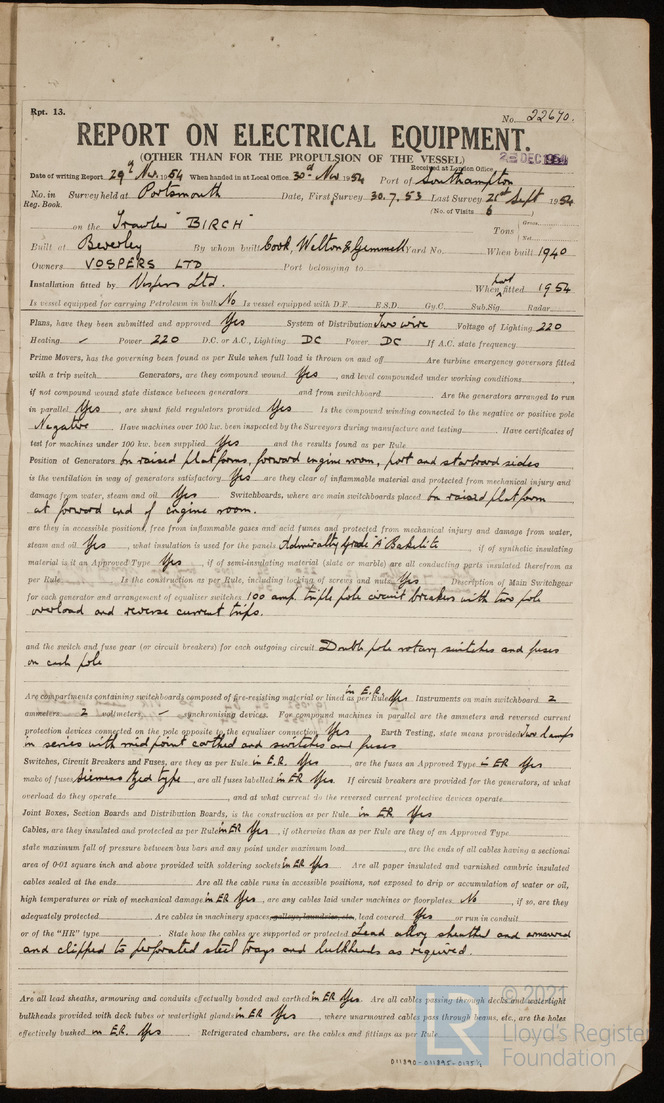 Rpt. 13.
No. 22670.
REPORT ON ELECTRICAL EQUIPMENT.
(OTHER THAN FOR THE PROPULSION OF THE VESSEL)
Received at London Office 2 DEC 1954
Date of writing Report 29th Nov. 1954 When handed in at Local Office 30th Nov 1954 Port of Southampton
No. in Reg. Book. Survey held at Portsmouth Date, First Survey 30.7.53 Last Survey 21st Sept 1954
(No. of Visits 6 )
on the Trawler "BIRCH" Tons Gross Net
Built at Beverley By whom built Cook, Welton & Gemmell Yard No. When built 1940
Owners VOSPERS LTD Port belonging to
Installation fitted by Vospers Ltd. When part fitted 1954
Is vessel equipped for carrying Petroleum in bulk No Is vessel equipped with D.F. E.S.D. Gy.C. Sub.Sig. Radar
Plans, have they been submitted and approved Yes System of Distribution Two wire Voltage of Lighting 220
Heating - Power 220 D.C. or A.C., Lighting DC Power DC If A.C. state frequency
Prime Movers, has the governing been found as per Rule when full load is thrown on and off Are turbine emergency governors fitted
with a trip switch Generators, are they compound wound Yes, and level compounded under working conditions,
if not compound wound state distance between generators and from switchboard Are the generators arranged to run
in parallel Yes, are shunt field regulators provided Yes Is the compound winding connected to the negative or positive pole
Negative Have machines over 100 kw. been inspected by the Surveyors during manufacture and testing Have certificates of
test for machines under 100 kw. been supplied Yes and the results found as per Rule
Position of Generators On raised platforms, forward engine room, port and starboard sides
is the ventilation in way of generators satisfactory Yes are they clear of inflammable material and protected from mechanical injury and
damage from water, steam and oil Yes Switchboards, where are main switchboards placed On raised platform
at forward end of engine room.
are they in accessible positions, free from inflammable gases and acid fumes and protected from mechanical injury and damage from water,
steam and oil Yes, what insulation is used for the panels Admiralty Grade 'A' Bakelite, if of synthetic insulating
material is it an Approved Type Yes, if of semi-insulating material (slate or marble) are all conducting parts insulated therefrom as
per Rule Is the construction as per Rule, including locking of screws and nuts Yes Description of Main Switchgear
for each generator and arrangement of equaliser switches 100 amp. triple pole circuit breakers with two pole
overload and reverse current trips.
and the switch and fuse gear (or circuit breakers) for each outgoing circuit Double pole rotary switches and fuses
on each pole
Are compartments containing switchboards composed of fire-resisting material or lined as per Rule in E.R. Yes Instruments on main switchboard 2
ammeters 2 voltmeters - synchronising devices. For compound machines in parallel are the ammeters and reversed current
protection devices connected on the pole opposite to the equaliser connection Yes Earth Testing, state means provided Two lamps
in series with mid point earthed and switches and fuses
Switches, Circuit Breakers and Fuses, are they as per Rule in E.R. Yes, are the fuses an Approved Type in ER Yes
make of fuses Siemens Zed type, are all fuses labelled in ER Yes If circuit breakers are provided for the generators, at what
overload do they operate, and at what current do the reversed current protective devices operate
Joint Boxes, Section Boards and Distribution Boards, is the construction as per Rule in ER Yes
Cables, are they insulated and protected as per Rule in ER Yes, if otherwise than as per Rule are they of an Approved Type
state maximum fall of pressure between bus bars and any point under maximum load, are the ends of all cables having a sectional
area of 0·01 square inch and above provided with soldering sockets in ER Yes Are all paper insulated and varnished cambric insulated
cables sealed at the ends Are all the cable runs in accessible positions, not exposed to drip or accumulation of water or oil,
high temperatures or risk of mechanical damage in ER Yes, are any cables laid under machines or floorplates No, if so, are they
adequately protected Are cables in machinery spaces, galleys, laundries, etc., lead covered Yes or run in conduit
or of the "HR" type State how the cables are supported or protected Lead alloy sheathed and armoured
and clipped to perforated steel trays and bulkheads as required.
Are all lead sheaths, armouring and conduits effectually bonded and earthed in ER Yes. Are all cables passing through decks and watertight
bulkheads provided with deck tubes or watertight glands in ER Yes, where unarmoured cables pass through beams, etc., are the holes
effectively bushed in ER. Yes Refrigerated chambers, are the cables and fittings as per Rule
© 2021
LR Lloyd's Register
Foundation
011890-011895-0175 1/2